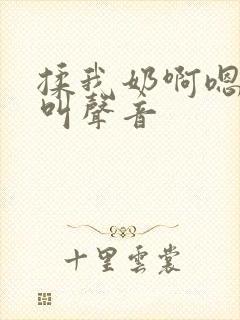 揉我奶啊嗯
叫聲音
十里雲裳